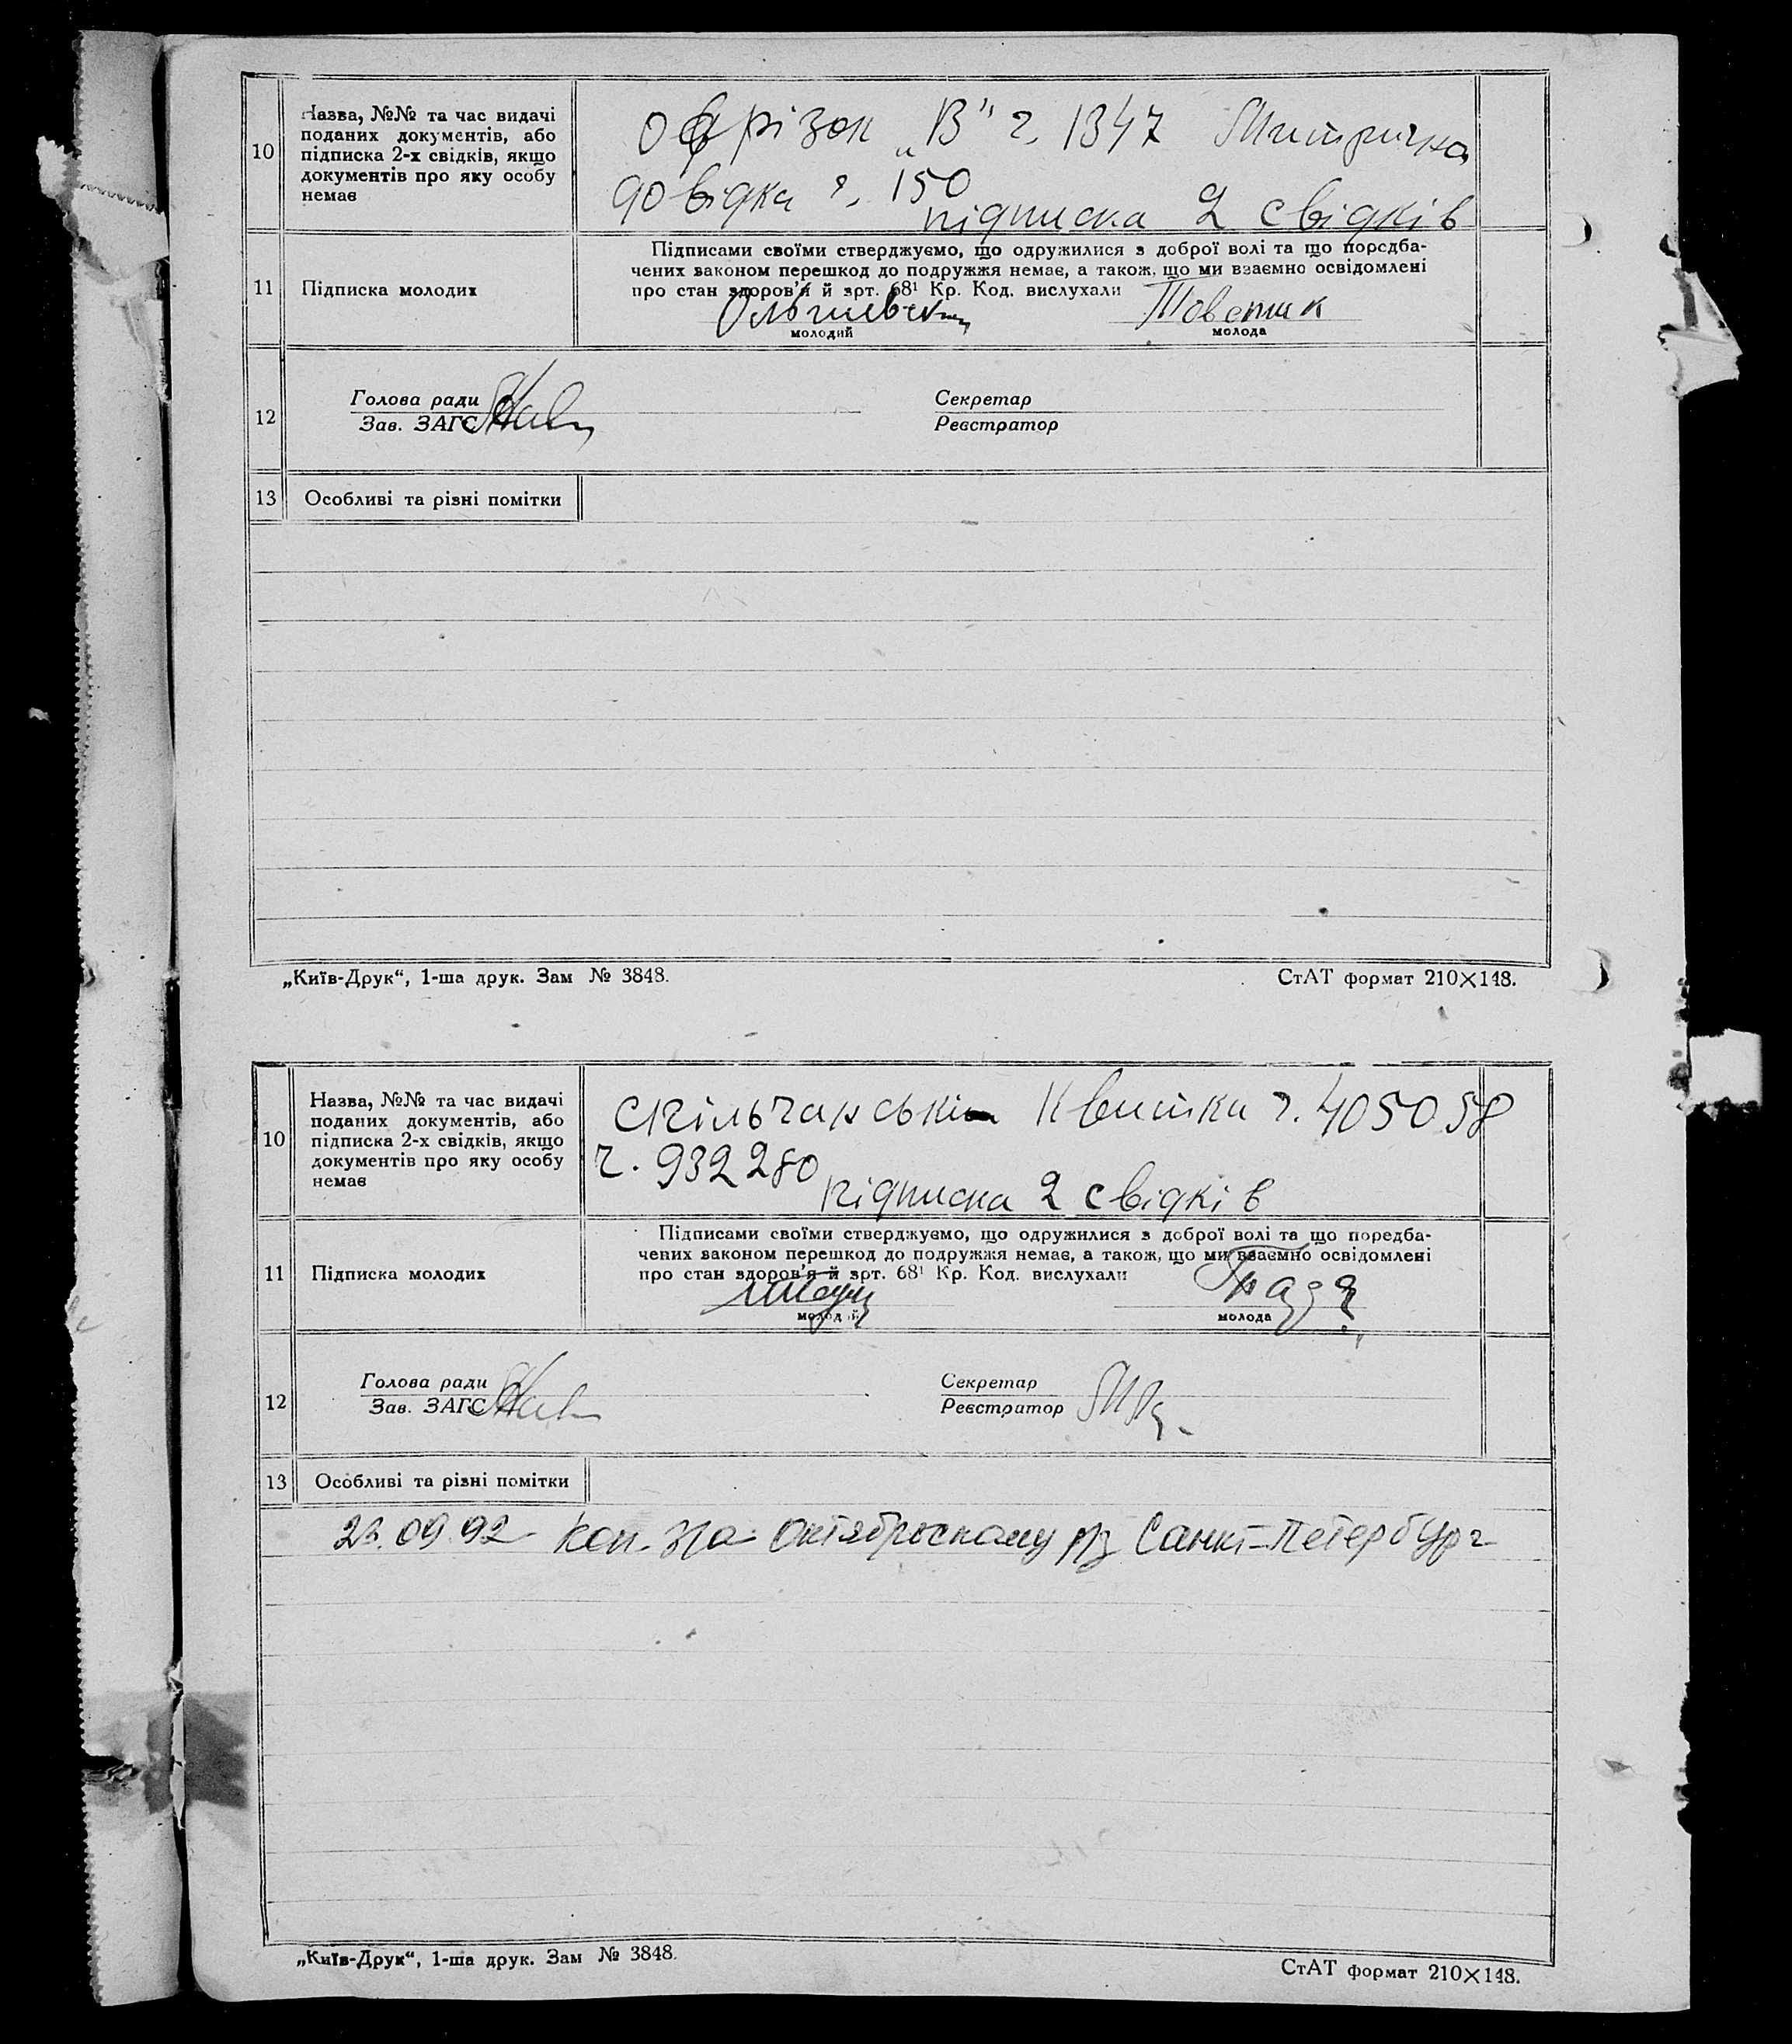 10
Назва, №№ та час видачі
поданих документів, або
підписка 2-х свідків, якщо
документів про яку особу
немає
Обрізок „В" ч. 1347 Митрична
довідка ч. 150
підписка 2 свідків
11
Підписка молодих
Підписами своїми стверджуємо, що одружилися з доброї волі та що поредба-
чених законом перешкод до подружжя немає, а також, що ми взаємно освідомлені
про стан здоров'я й арт. 68¹ Кр. Код. вислухали
молодий
молода
12
Голова ради
Зав. ЗАГС
Секретар
Реєстратор
13
Особливі та різні помітки
„Київ-Друк“, 1-ша друк. Зам № 3848.
СтАТ формат 210×148.
10
Назва, №№ та час видачі
поданих документів, або
підписка 2-х свідків, якщо
документів про яку особу
немає
Спільчанські Квитки ч. 405058
ч. 932280
підписка 2 свідків
11
Підписка молодих
Підписами своїми стверджуємо, що одружилися з доброї волі та що поредба-
чених законом перешкод до подружжя немає, а також, що ми взаємно освідомлені
про стан здоров'я й арт. 68¹ Кр. Код. вислухали
молодий
молода
12
Голова ради
Зав. ЗАГС
Секретар
Реєстратор
13
Особливі та різні помітки
09.92 Коп. Октябрьскому Санкт-Петербург
„Київ-Друк“, 1-ша друк. Зам № 3848.
СтАТ формат 210×148.